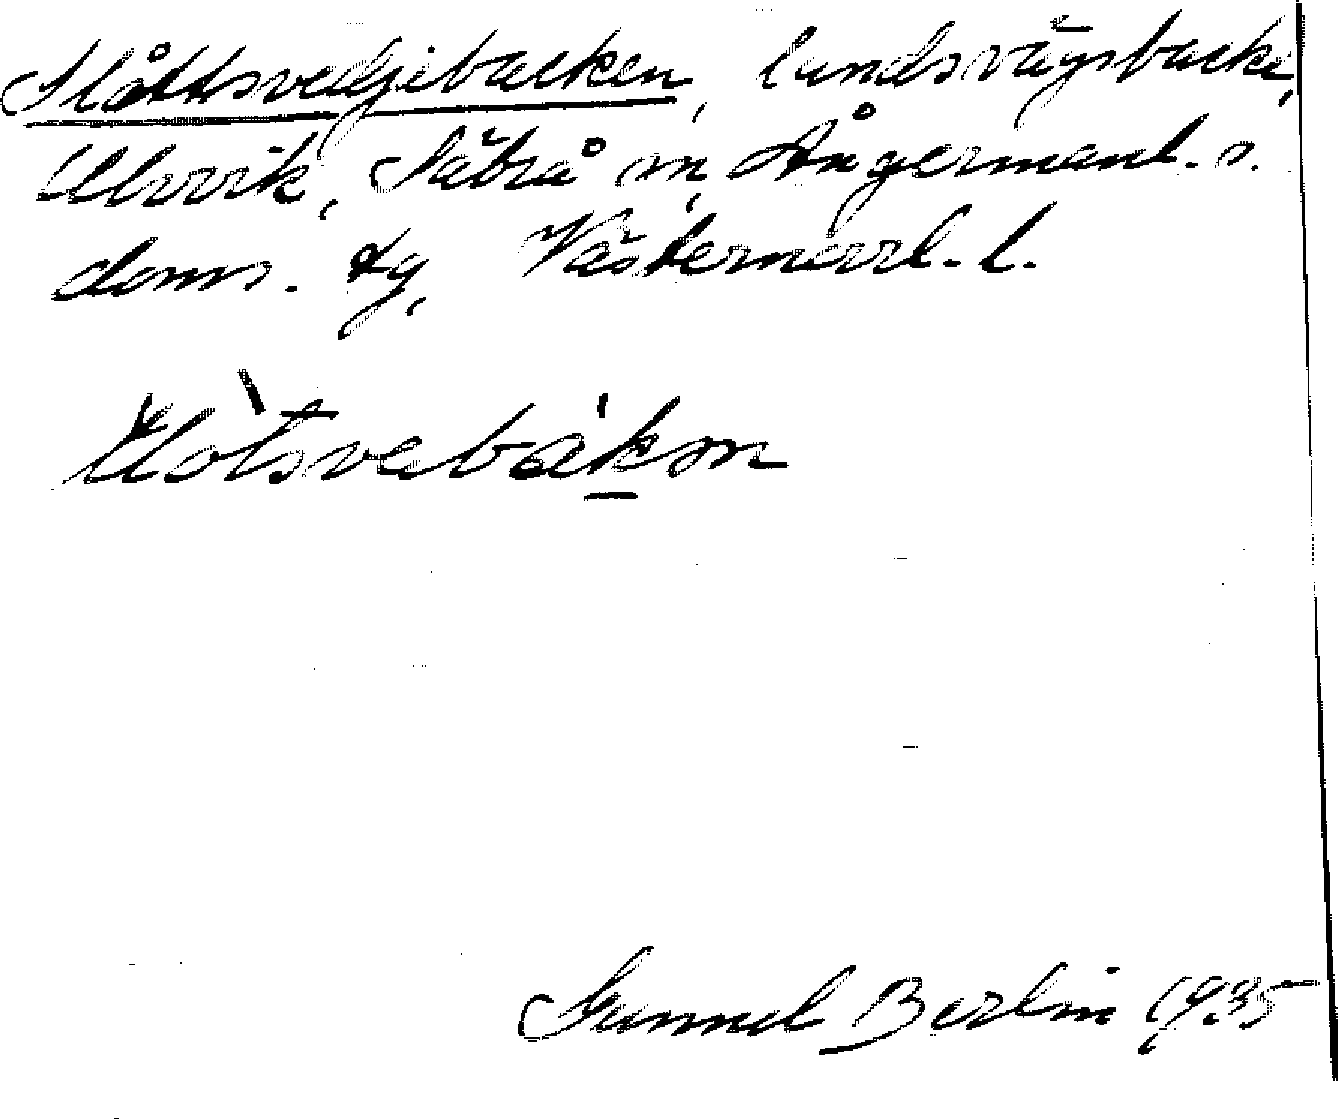 Slåttsvedjebacken, landsvägsbacke,
Ulvvik, Säbrå sn, Ångermanl. s.
doms. tg, Västernorrl. l.
Gunnel Berlin 1935